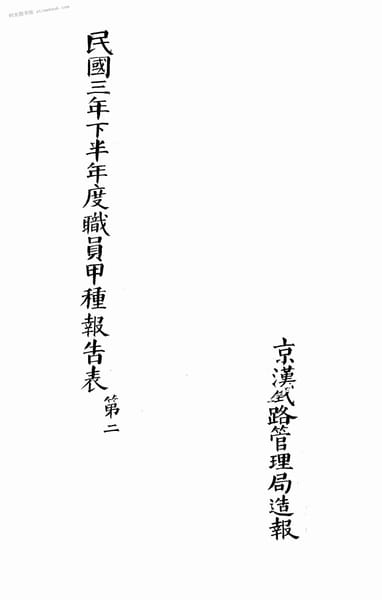 京漢鐵路管理局造報
民國三年下半年度職員甲種報告表 第二